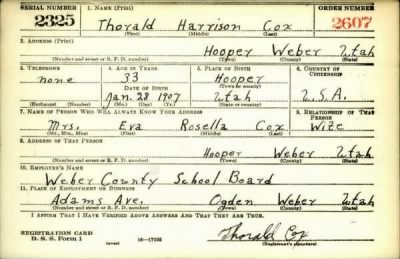 SERIAL NUMBER 1. NAME (Print) ORDER NUMBER
2325 Thorald Harrison Cox 2607
(First) (Middle) (Last)
2. ADDRESS (Print)
Hooper Weber Utah
(Number and street or R. F. D. number) (Town) (County) (State)
3. TELEPHONE 4. AGE IN YEARS 5. PLACE OF BIRTH 6. COUNTRY OF CITIZENSHIP
none 33 Hooper
DATE OF BIRTH (Town or county)
Jan. 28 1907 Utah U.S.A.
(Exchange) (Number) (Mo.) (Day) (Yr.) (State or country)
7. NAME OF PERSON WHO WILL ALWAYS KNOW YOUR ADDRESS 8. RELATIONSHIP OF THAT PERSON
Mrs. Eva Rosella Cox Wife
(Mr., Mrs., Miss) (First) (Middle) (Last)
9. ADDRESS OF THAT PERSON
Hooper Weber Utah
(Number and street or R. F. D. number) (Town) (County) (State)
10. EMPLOYER'S NAME
Weber County School Board
11. PLACE OF EMPLOYMENT OR BUSINESS
Adams Ave. Ogden Weber Utah
(Number and street or R. F. D. number) (Town) (County) (State)
I AFFIRM THAT I HAVE VERIFIED ABOVE ANSWERS AND THAT THEY ARE TRUE.
REGISTRATION CARD
D. S. S. Form 1 (over) 16—17105 Thorald Cox
(Registrant's signature)